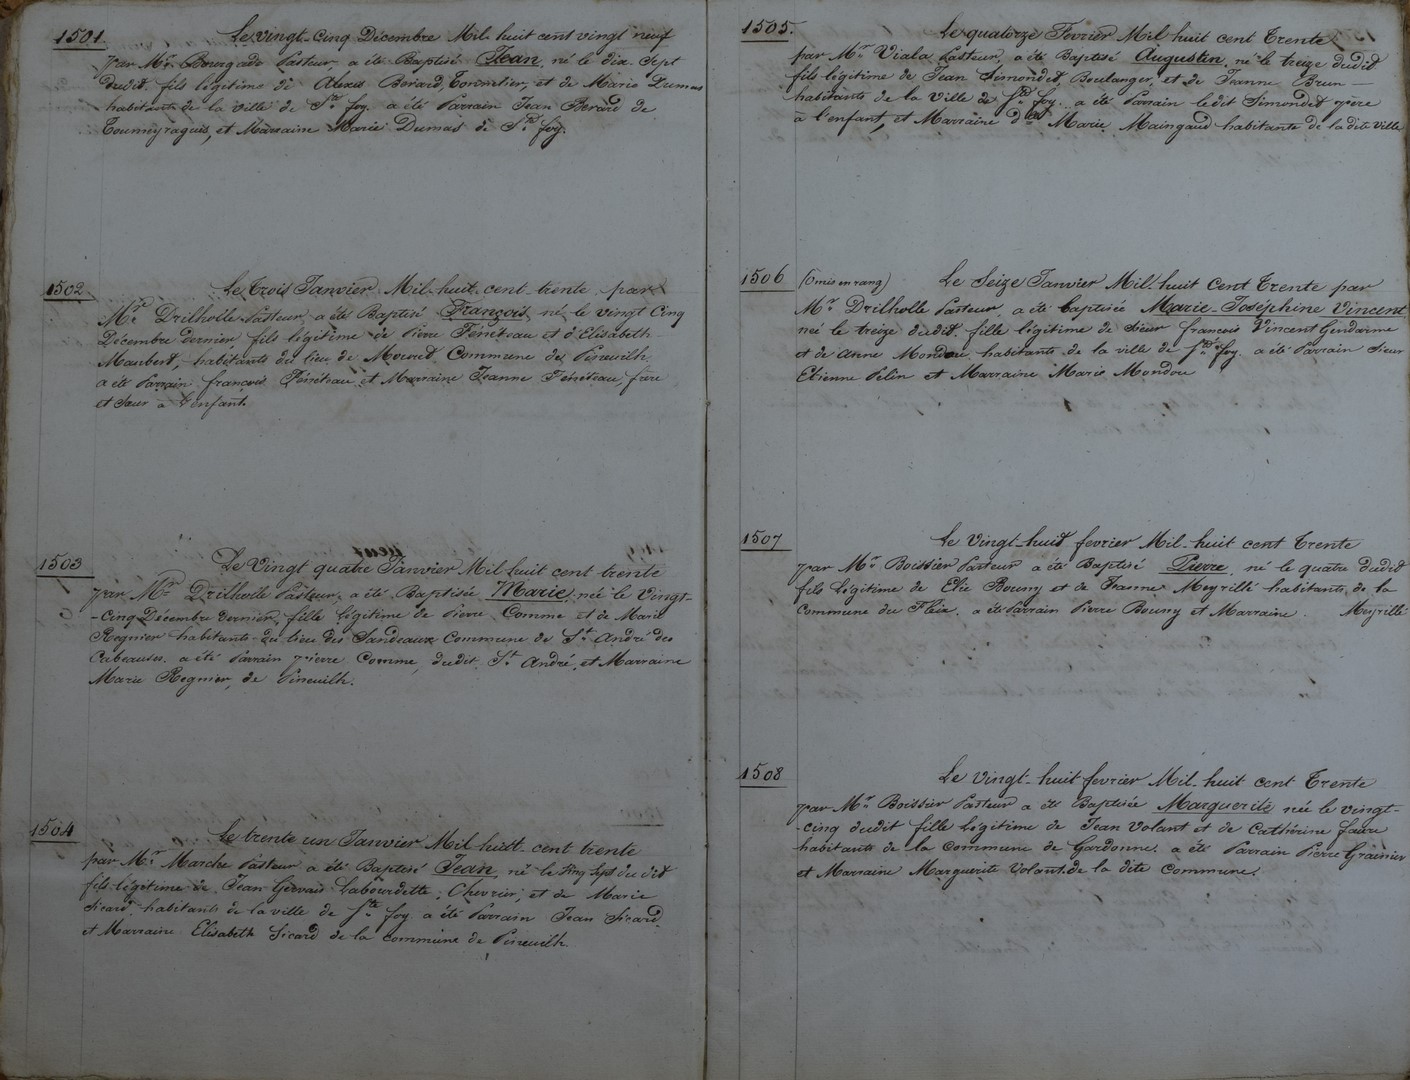 1501
Le Vingt-Cinq Décembre Mil-huit cent vingt neuf
par Mr. Bourgade Pasteur, a été Baptisé Jean, né le dix Sept
dudit, fils légitime de Alexis Berard, Tonnelier, et de Marie Dumas
habitants de la ville de Ste foy. a été Parrain Jean Berard de
et Marraine Marie Dumas de Ste foy.
1502
Le Trois Janvier Mil-huit-cent-trente par
Mr. Drilholle Pasteur, a été Baptisé François, né le vingt Cinq
Décembre dernier, fils légitime de Pierre Féréteau et d'Elisabeth
Maubert, habitants du lieu de Commune de Pineuilh
a été Parrain François Féréteau et Marraine Jeanne Féréteau, frère
et Sœur à l'enfant.
1503
Le Vingt quatre Janvier Mil-huit cent trente
par Mr. Drilholle Pasteur, a été Baptisée Marie, née le Vingt-
-Cinq Décembre dernier, fille légitime de Pierre Comme et de Marie
Regnier habitants du lieu des Sandeaux Commune de St. André des
Cabeauses. a été Parrain pierre Comme, dudit St. André, et Marraine
Marie Regnier, de Pineuilh.
1504
Le trente un Janvier Mil huit cent trente
par Mr. Marche Pasteur a été Baptisé Jean, né le Vingt Sept du dit
fils légitime de Jean Gervais Labourdette, Chevrier, et de Marie
Sicard, habitants de la ville de Ste foy. a été Parrain Jean Sicard,
et Marraine Elisabeth Sicard de la commune de Pineuilh.
1505.
Le quatorze Fevrier Mil huit cent Trente
par Mr Viala Pasteur, a été Baptisé Augustin, né le treize dudit
fils légitime de Jean Simondet Boulanger, et de Jeanne Brun-
habitants de la Ville de Ste foy. a été Parrain ledit Simondet père
à l'enfant, et Marraine dlle Marie Maingaud habitante de la dite Ville
1506 (Omis en rang) Le Seize Janvier Mil-huit Cent Trente par
Mr. Drilholle Pasteur, a été baptisée Marie-Joséphine Vincent
née le treize dudit, fille légitime de Sieur françois Vincent Gendarme
et de Anne Mondou habitants de la ville de Ste foy. a été Parrain Sieur
Etienne Pelin et Marraine Marie Mondou
1507
Le Vingt-huit fevrier Mil-huit cent Trente
par Mr Boissier Pasteur a été Baptisé Pierre, né le quatre dudit
fils légitime de Elie Bouny et de Jeanne Meyrillé habitants, de la
Commune du Fleix. a été Parrain Pierre Bouny et Marraine. Meyrillé
1508
Le Vingt-huit fevrier Mil-huit cent Trente
par Mr. Boissier Pasteur a été Baptisée Marguerite née le vingt-
-cinq dudit fille légitime de Jean Volant et de Cathérine faure
habitants de la Commune de Gardonne. a été Parrain Pierre Grainier
et Marraine Marguerite Volant de la dite Commune.